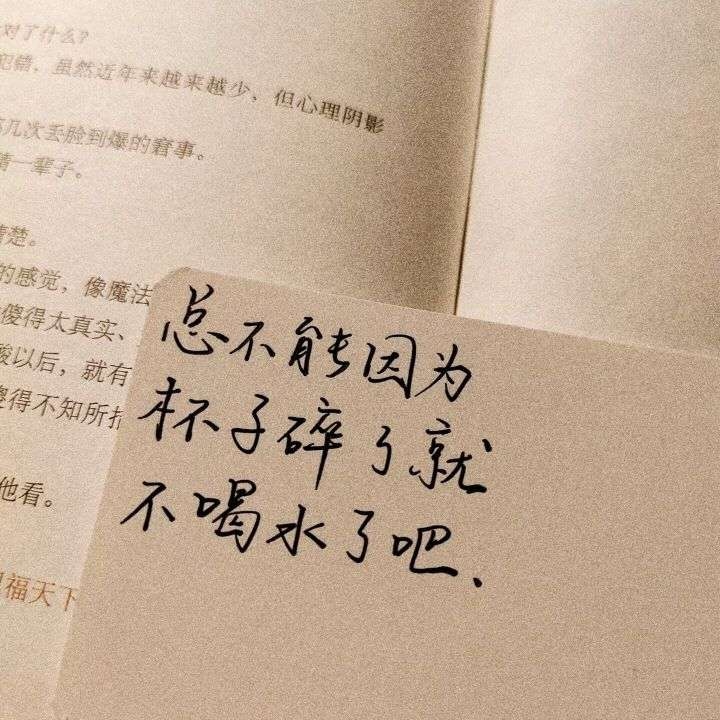 对了什么?
犯错，虽然近年来越来越少，但心理阴影
几次丢脸到爆的窘事。
一辈子。
清楚。
的感觉，像魔法
傻得太真实、
酸以后，就有
傻得不知所措
他看。
福天下
总不能因为
杯子碎了就
不喝水了吧、